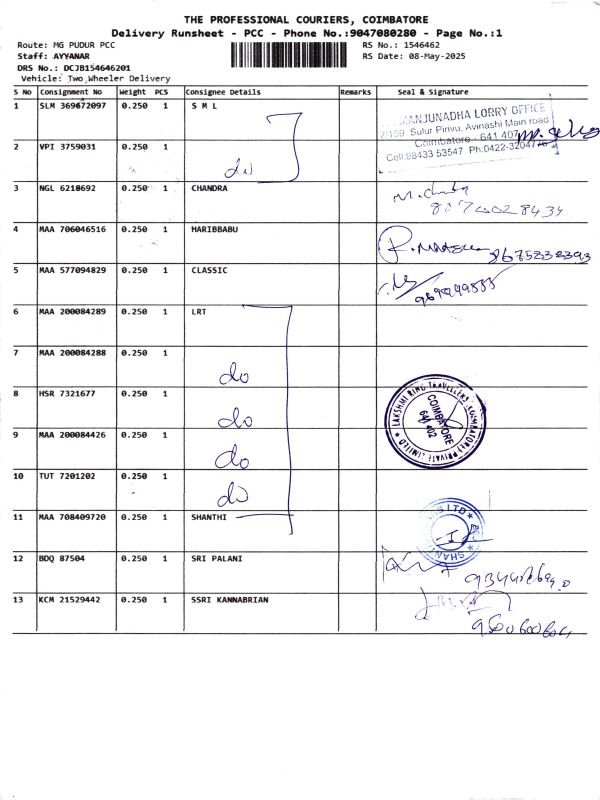 THE PROFESSIONAL COURIERS, COIMBATORE
Delivery Runsheet - PCC - Phone No.:9047080280 - Page No.:1
Route: MG PUDUR PCC
RS No.: 1546462
Staff: AYYANAR
RS Date: 08-May-2025
DRS No.: DCJB154646201
Vehicle: Two Wheeler Delivery
S No Consignment No Weight PCS Consignee Details Remarks Seal & Signature
1 SLM 369672097 0.250 1 S M L
MANJUNADHA LORRY OFFICE
2/159 Sulur Pirivu, Avinashi Main road
Coimbatore - 641 407
Cell:98433 53547 Ph:0422-3204776
2 VPI 3759031 0.250 1 do
3 NGL 6218692 0.250 1 CHANDRA
4 MAA 706046516 0.250 1 HARIBBABU
5 MAA 577094829 0.250 1 CLASSIC
6 MAA 200084289 0.250 1 LRT
7 MAA 200084288 0.250 1 do
8 HSR 7321677 0.250 1 do
LAKSHMI RING TRAVELLERS (COIMBATORE) PRIVATE LIMITED
COIMBATORE
641 402
9 MAA 200084426 0.250 1 do
10 TUT 7201202 0.250 1 do
11 MAA 708409720 0.250 1 SHANTHI
12 BDQ 87504 0.250 1 SRI PALANI
13 KCM 21529442 0.250 1 SSRI KANNABRIAN